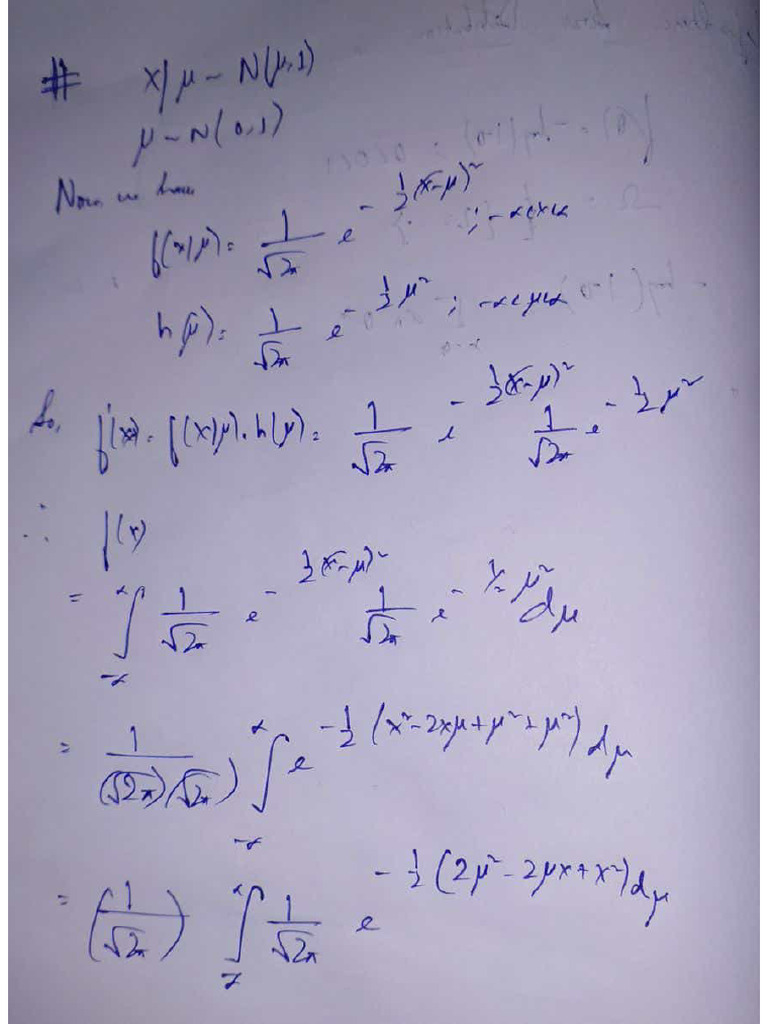 # x|μ ~ N(μ, 1)
μ ~ N(0, 1)
Now we have
f(x|μ) = 1/√2π e^{-½(x-μ)²} ; -∝<x<∝
h(μ) = 1/√2π e^{-½μ²} ; -∝<μ<∝
So, f(x) = f(x|μ).h(μ) = 1/√2π e^{-½(x-μ)²} 1/√2π e^{-½μ²}
∴ f(x)
= ∫_{-∝}^{∝} 1/√2π e^{-½(x-μ)²} 1/√2π e^{-½μ²} dμ
= 1/(√2π)(√2π) ∫_{-∝}^{∝} e^{-½(x²-2xμ+μ²+μ²)} dμ
= (1/√2π) ∫_{-∝}^{∝} 1/√2π e^{-½(2μ²-2μx+x²)} dμ